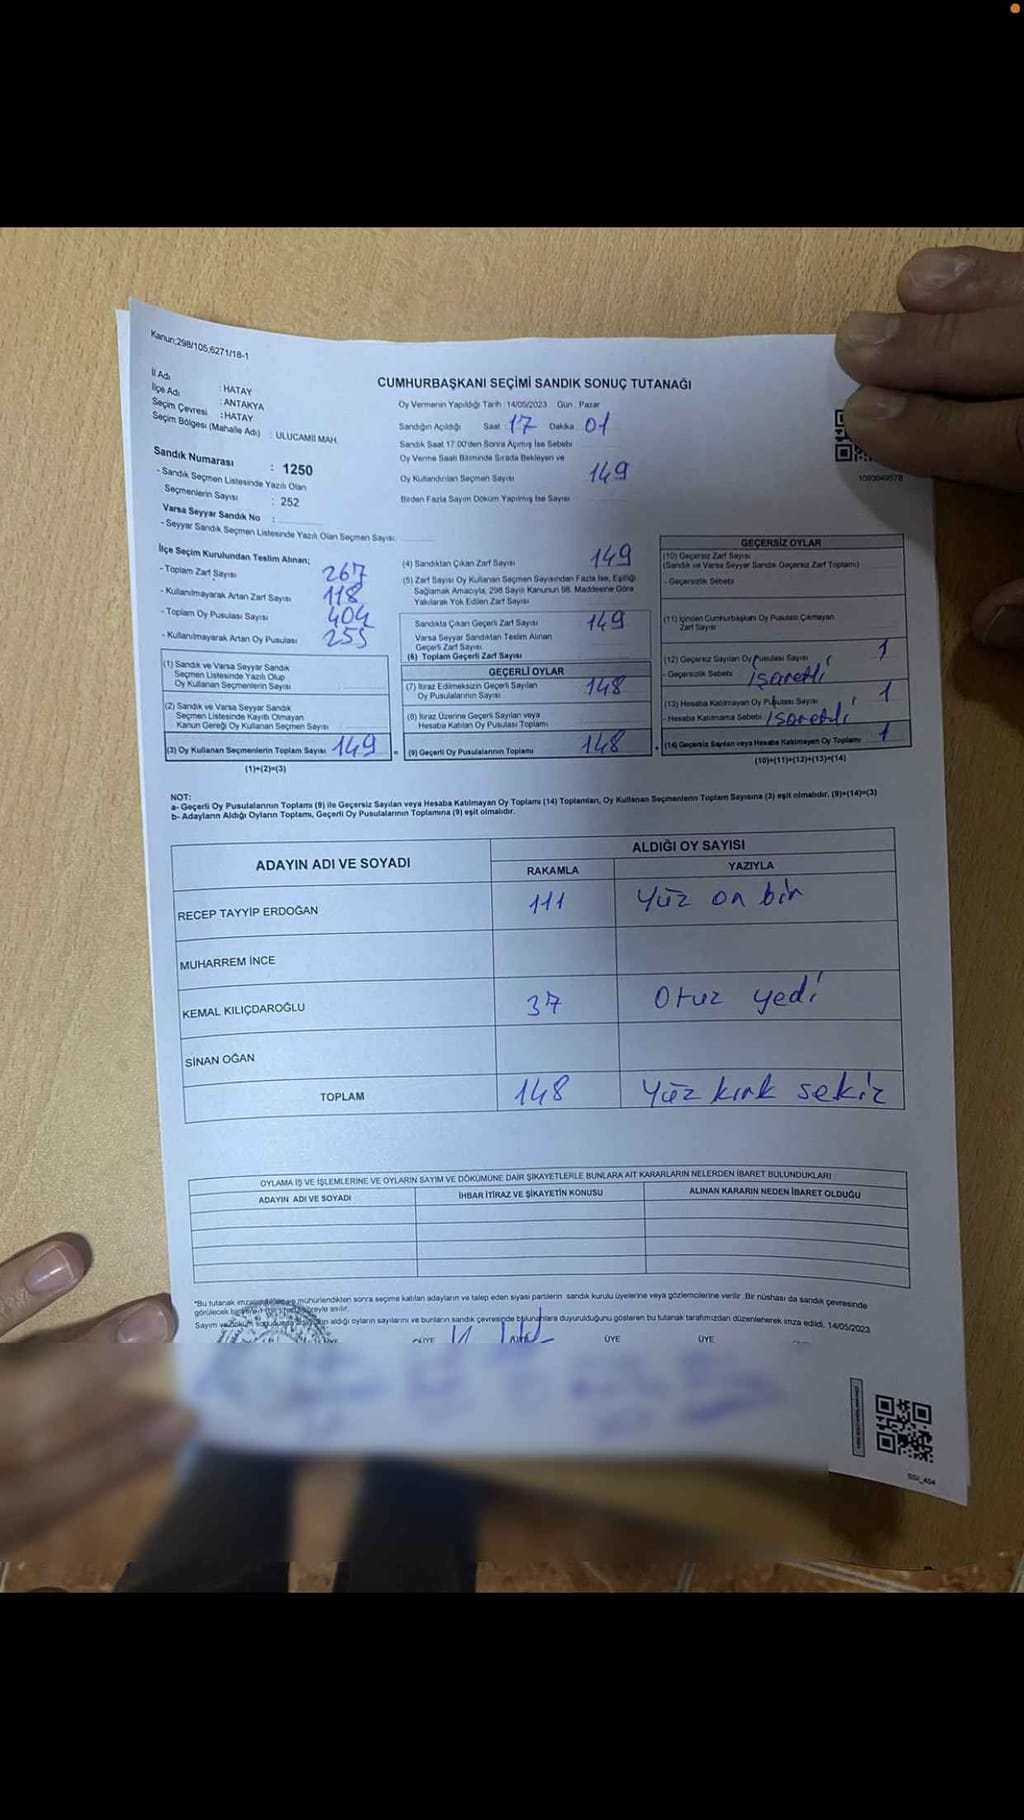 Kanun;298/105;6271/18-1
İl Adı : HATAY
İlçe Adı : ANTAKYA
Seçim Çevresi : HATAY
Seçim Bölgesi (Mahalle Adı) : ULUCAMİİ MAH
Sandık Numarası : 1250
- Sandık Seçmen Listesinde Yazılı Olan
Seçmenlerin Sayısı : 252
Varsa Seyyar Sandık No :
- Seyyar Sandık Seçmen Listesinde Yazılı Olan Seçmen Sayısı:
CUMHURBAŞKANI SEÇİMİ SANDIK SONUÇ TUTANAĞI
Oy Vermenin Yapıldığı Tarih : 14/05/2023 Gün : Pazar
Sandığın Açıldığı Saat : 17 Dakika : 01
Sandık Saat 17.00'den Sonra Açılmış İse Sebebi
Oy Verme Saati Bitiminde Sırada Bekleyen ve
Oy Kullandırılan Seçmen Sayısı 149
Birden Fazla Sayım Döküm Yapılmış İse Sayısı
1093649578
İlçe Seçim Kurulundan Teslim Alınan;
- Toplam Zarf Sayısı 267
- Kullanılmayarak Artan Zarf Sayısı 118
- Toplam Oy Pusulası Sayısı 404
- Kullanılmayarak Artan Oy Pusulası 255
(1) Sandık ve Varsa Seyyar Sandık
Seçmen Listesinde Yazılı Olup
Oy Kullanan Seçmenlerin Sayısı
(2) Sandık ve Varsa Seyyar Sandık
Seçmen Listesinde Kayıtlı Olmayan
Kanun Gereği Oy Kullanan Seçmen Sayısı
(3) Oy Kullanan Seçmenlerin Toplam Sayısı 149 =
(1)+(2)=(3)
(4) Sandıktan Çıkan Zarf Sayısı 149
(5) Zarf Sayısı Oy Kullanan Seçmen Sayısından Fazla İse, Eşitliği
Sağlamak Amacıyla, 298 Sayılı Kanunun 98. Maddesine Göre
Yakılarak Yok Edilen Zarf Sayısı
Sandıkta Çıkan Geçerli Zarf Sayısı 149
Varsa Seyyar Sandıktan Teslim Alınan
Geçerli Zarf Sayısı
(6) Toplam Geçerli Zarf Sayısı
GEÇERLİ OYLAR
(7) İtiraz Edilmeksizin Geçerli Sayılan
Oy Pusulalarının Sayısı 148
(8) İtiraz Üzerine Geçerli Sayılan veya
Hesaba Katılan Oy Pusulası Toplamı
(9) Geçerli Oy Pusulalarının Toplamı 148 +
GEÇERSİZ OYLAR
(10) Geçersiz Zarf Sayısı
(Sandık ve Varsa Seyyar Sandık Geçersiz Zarf Toplamı)
- Geçersizlik Sebebi
(11) İçinden Cumhurbaşkanı Oy Pusulası Çıkmayan
Zarf Sayısı
(12) Geçersiz Sayılan Oy Pusulası Sayısı 1
- Geçersizlik Sebebi işaretli
(13) Hesaba Katılmayan Oy Pusulası Sayısı 1
- Hesaba Katılmama Sebebi işaretli
(14) Geçersiz Sayılan veya Hesaba Katılmayan Oy Toplamı 1
(10)+(11)+(12)+(13)=(14)
NOT:
a- Geçerli Oy Pusulalarının Toplamı (9) ile Geçersiz Sayılan veya Hesaba Katılmayan Oy Toplamı (14) Toplamları, Oy Kullanan Seçmenlerin Toplam Sayısına (3) eşit olmalıdır. (9)+(14)=(3)
b- Adayların Aldığı Oyların Toplamı, Geçerli Oy Pusulalarının Toplamına (9) eşit olmalıdır.
ADAYIN ADI VE SOYADI
ALDIĞI OY SAYISI
RAKAMLA YAZIYLA
RECEP TAYYİP ERDOĞAN 111 Yüz on bir
MUHARREM İNCE
KEMAL KILIÇDAROĞLU 37 Otuz yedi
SİNAN OĞAN
TOPLAM 148 Yüz kırk sekiz
OYLAMA İŞ VE İŞLEMLERİNE VE OYLARIN SAYIM VE DÖKÜMÜNE DAİR ŞİKAYETLERLE BUNLARA AİT KARARLARIN NELERDEN İBARET BULUNDUKLARI
ADAYIN ADI VE SOYADI İHBAR İTİRAZ VE ŞİKAYETİN KONUSU ALINAN KARARIN NEDEN İBARET OLDUĞU
*Bu tutanak mühürlendikten sonra seçime katılan adayların ve talep eden siyasi partilerin sandık kurulu üyelerine veya gözlemcilerine verilir. Bir nüshası da sandık çevresinde
görülecek bir asılır.
Sayım ve aldığı oyların sayılarını ve bunların sandık çevresinde bulunanlara duyurulduğunu gösteren bu tutanak tarafımızdan düzenlenerek imza edildi. 14/05/2023
ÜYE ÜYE ÜYE
SSİ_404